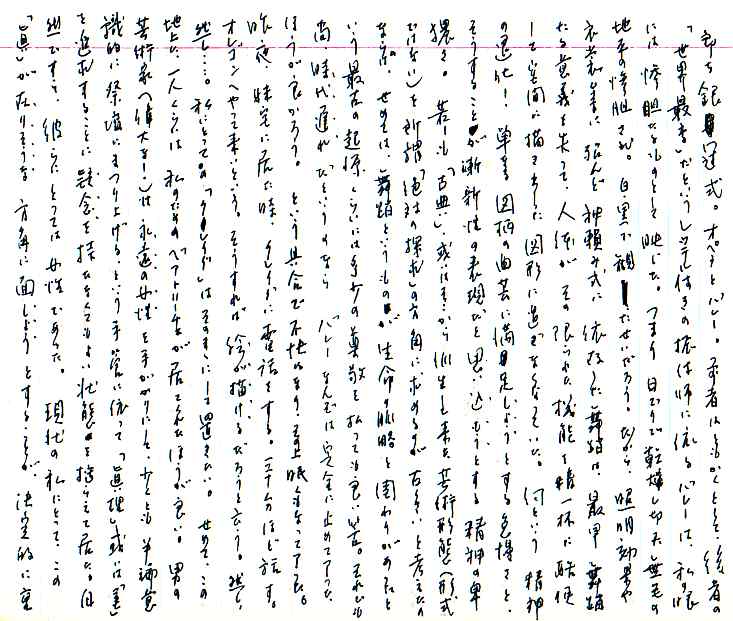 即ち銀婚式。オペラとバレー。前者はともかくとして、後者の
「世界最高」だというレッテル付きの振付師に依るバレーは、私の眼
には惨胆たるものとして映じた。つまり日でりで乾燥し切った無毛の
地平の惨胆さね。白黒で観たせいだろう。だから、照明効果や
衣裳等に殆んど神頼み式に依存した舞踏は、最早舞踏
たる意義を失って、人体がその限られた機能を精一杯に酷使
して空間に描き出した図形に過ぎなくなっていた。何という精神
の退化! 単なる図柄の曲芸に満足しようとする怠慢さと、
そうすることが斬新性の表現だと思い込もうとする精神の卑
猥さ。若しも「古典」或はそこから派生し来た芸術形態(形式
ではない)を所謂「絶対の探求」の方角に求めるのが古くさいと考えるの
ならば、せめては、舞踏というものが生命の脈略と関わりがあったと
いう最古の起源くらいには多少の尊敬を払っても良い筈。それでも
尚「時代遅れ」だというのなら バレーなんぞは完全に止めて了った
ほうが良かろう。という具合で不愉快になり、その上眠くなって了った。
昨夜、妹宅に居た時、クレイドに電話をする。三十分ほど話す。
オレゴンへやって来いという。そうすれば絵が描けるだろうと言う。然し、
然し……。私にとっての「クレイド」はそのままにして置きたい。せめて、この
地上に一人くらいは 私のための「ベアトリーチェ」が居てくれたほうが良い。男の
芸術家(偉大な!)は永遠の女性を手がかりにして、少くとも半ば意
識的に祭壇にまつり上げるという手管に依って「真理」或いは「美」
を追求することに疑念を持たなくてもよい状態を拵らえて居た。自
然ですて、彼らにとっては女性であった。現代の私にとって、この
「真」が在りそうな方角に面しようとすることが、決定的に重